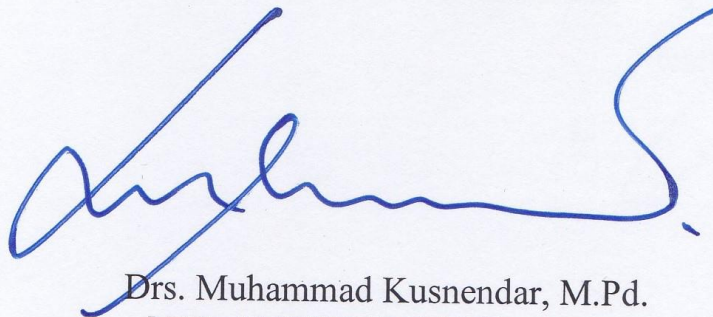 Drs. Muhammad Kusnendar, M.Pd.